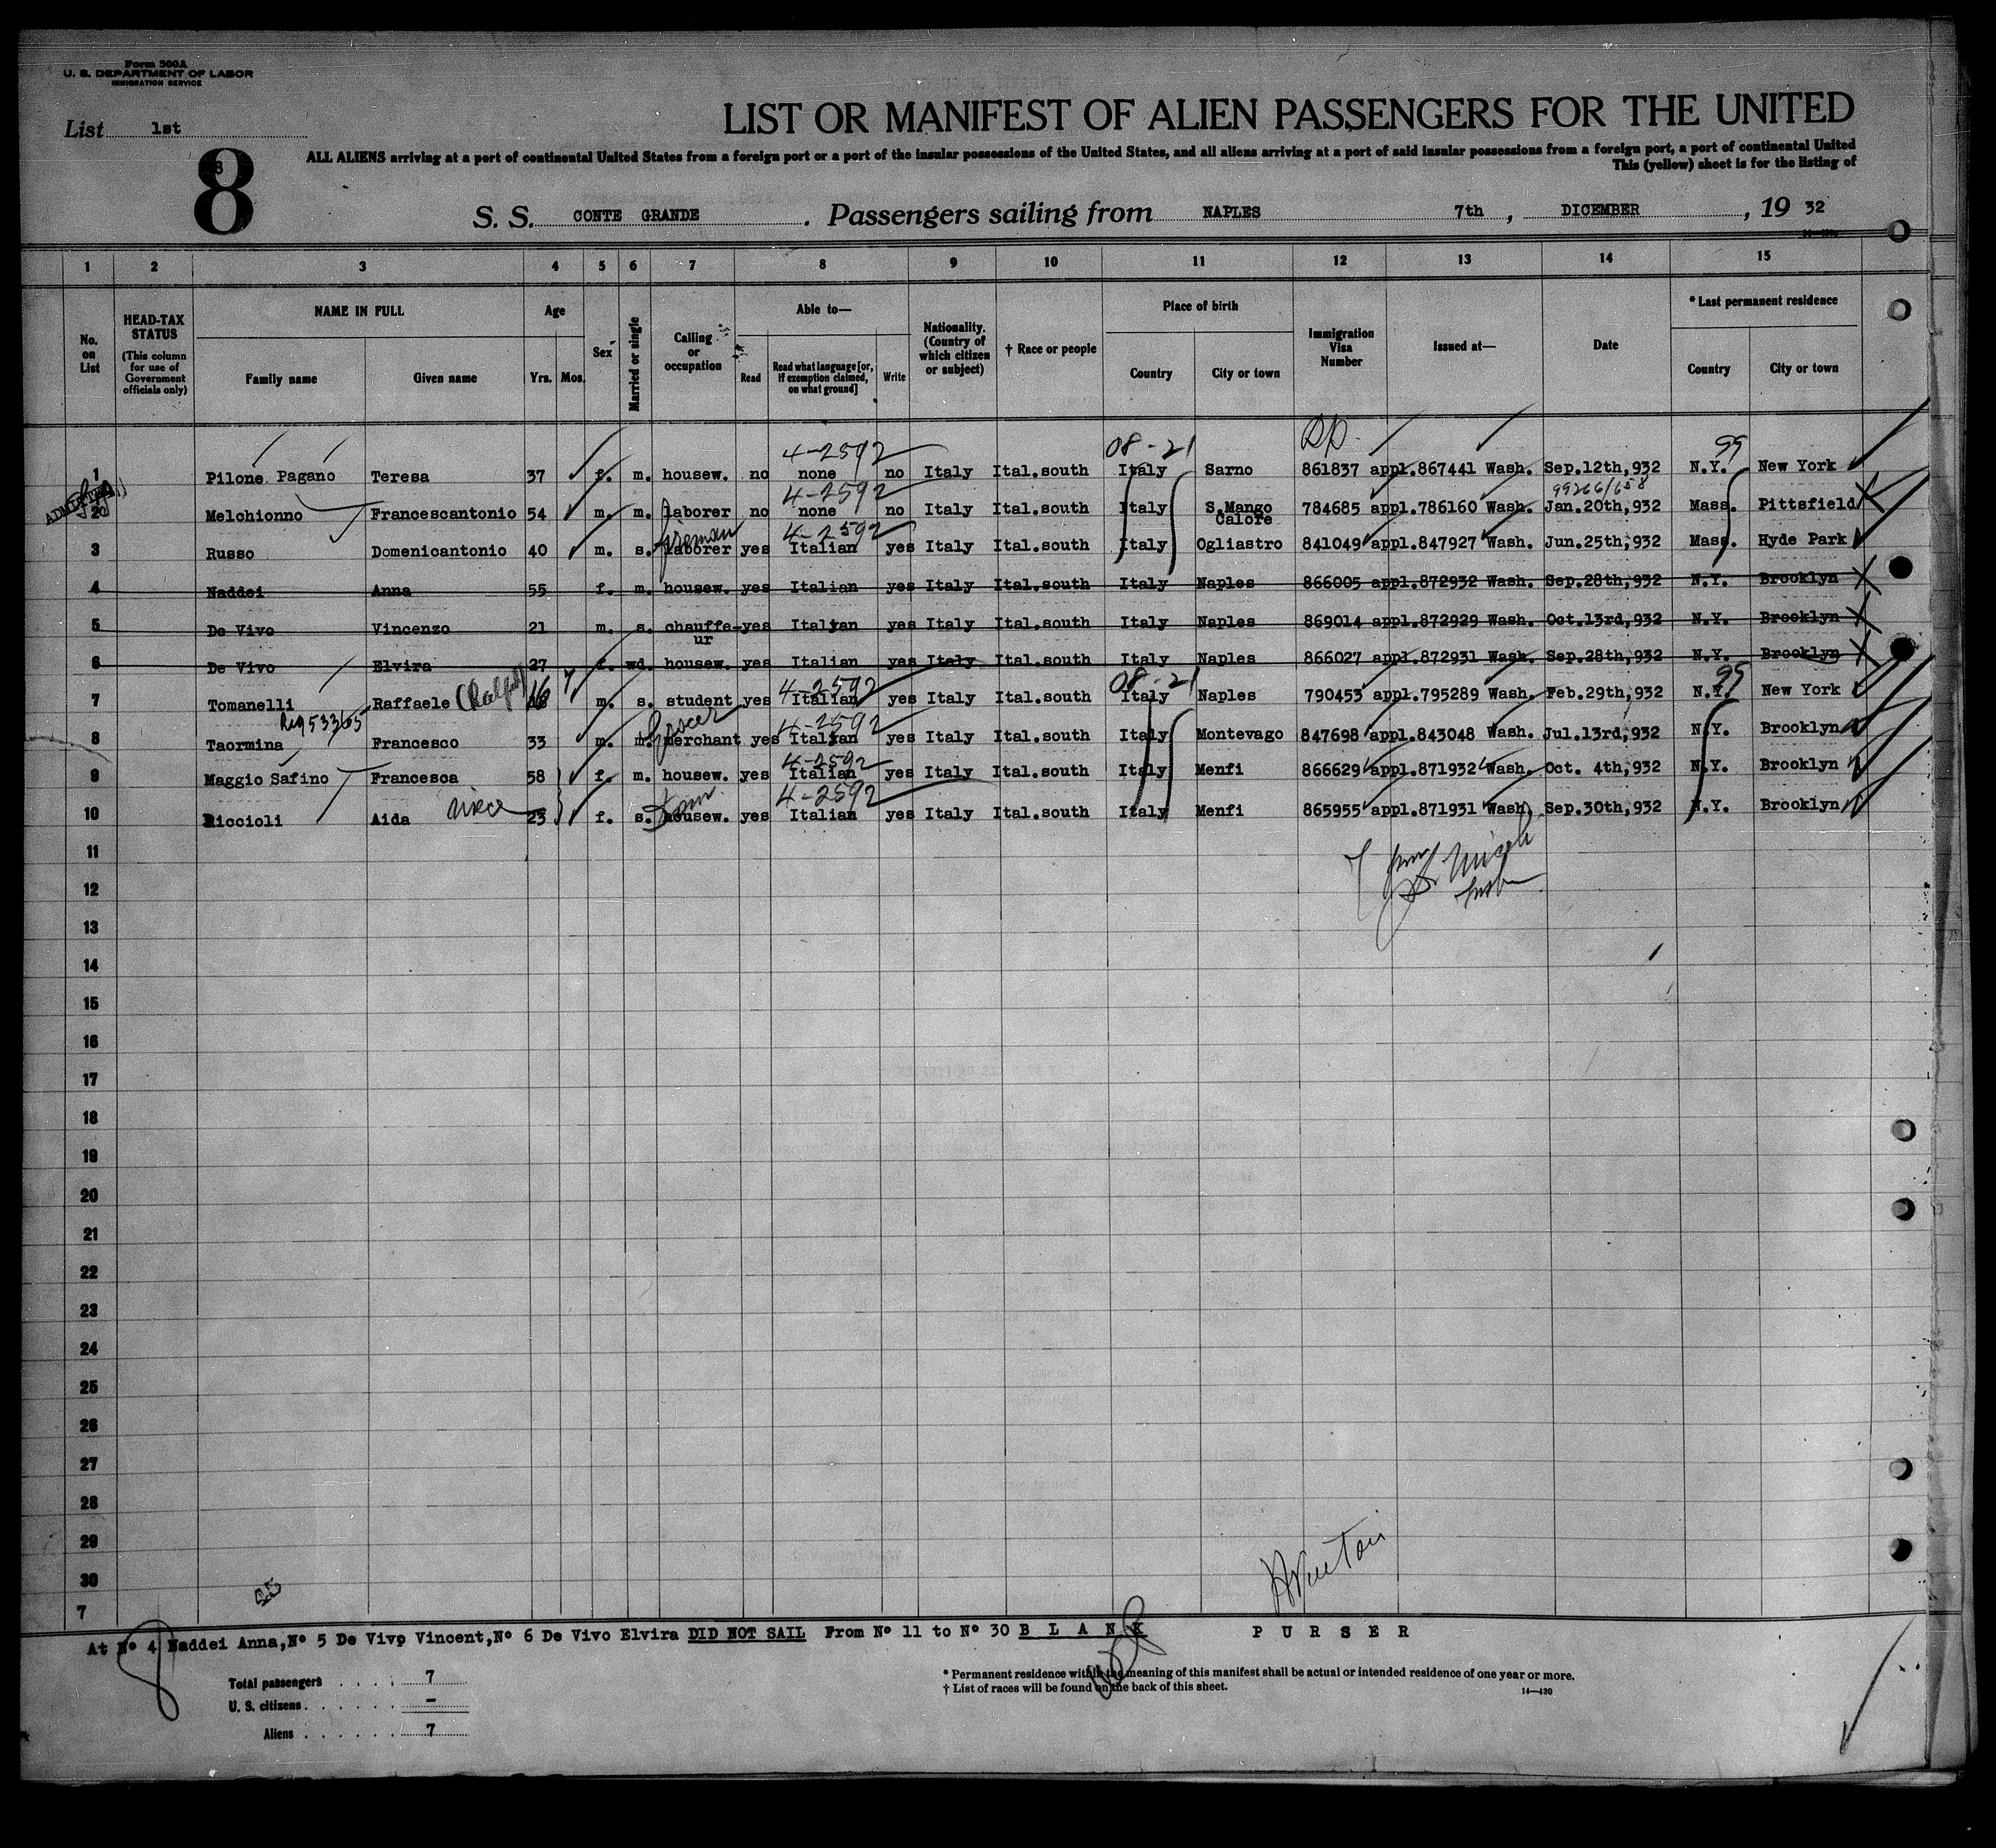 Form 500A
U. S. DEPARTMENT OF LABOR
IMMIGRATION SERVICE
List 1st
8
LIST OR MANIFEST OF ALIEN PASSENGERS FOR THE UNITED
ALL ALIENS arriving at a port of continental United States from a foreign port or a port of the insular possessions of the United States, and all aliens arriving at a port of said insular possessions from a foreign port, a port of continental United
This (yellow) sheet is for the listing of
S. S. CONTE GRANDE , Passengers sailing from NAPLES 7th , DICEMBER , 19 32
1 2 3 4 5 6 7 8 9 10 11 12 13 14 15
No. on List
HEAD-TAX STATUS (This column for use of Government officials only)
NAME IN FULL
Family name Given name
Age
Yrs. Mos.
Sex
Married or single
Calling or occupation
Able to—
Read Read what language [or, if exemption claimed, on what ground] Write
Nationality. (Country of which citizen or subject)
† Race or people
Place of birth
Country City or town
Immigration Visa Number
Issued at—
Date
* Last permanent residence
Country City or town
4-2592 08-21 99
1 Pilone Pagano Teresa 37 f. m. housew. no none no Italy Ital.south Italy Sarno 861837 appl.867441 Wash. Sep.12th,932 N.Y. New York
ADMITTED 4-2592 99266/658
2 Melchionno Francescantonio 54 m. m. laborer no none no Italy Ital.south Italy S.Mango Calore 784685 appl.786160 Wash. Jan.20th,932 Mass. Pittsfield
fireman 4-2592
3 Russo Domenicantonio 40 m. s. laborer yes Italian yes Italy Ital.south Italy Ogliastro 841049 appl.847927 Wash. Jun.25th,932 Mass. Hyde Park
4 Naddei Anna 55 f. m. housew. yes Italian yes Italy Ital.south Italy Naples 866005 appl.872932 Wash. Sep.28th,932 N.Y. Brooklyn
5 De Vivo Vincenzo 21 m. s. chauffe-ur yes Italian yes Italy Ital.south Italy Naples 869014 appl.872929 Wash. Oct.13rd,932 N.Y. Brooklyn
6 De Vivo Elvira 27 f. wd. housew. yes Italian yes Italy Ital.south Italy Naples 866027 appl.872931 Wash. Sep.28th,932 N.Y. Brooklyn
4-2592 08-21 99
7 Tomanelli Raffaele (Ralph) 16 m. s. student yes Italian yes Italy Ital.south Italy Naples 790453 appl.795289 Wash. Feb.29th,932 N.Y. New York
Reg 533165 Grocer 4-2592
8 Taormina Francesco 33 m. m. merchant yes Italian yes Italy Ital.south Italy Montevago 847698 appl.843048 Wash. Jul.13rd,932 N.Y. Brooklyn
4-2592
9 Maggio Safino Francesca 58 f. m. housew. yes Italian yes Italy Ital.south Italy Menfi 866629 appl.871932 Wash. Oct. 4th,932 N.Y. Brooklyn
4-2592
10 Riccioli Aida niece 23 f. s. housew. yes Italian yes Italy Ital.south Italy Menfi 865955 appl.871931 Wash. Sep.30th,932 N.Y. Brooklyn
11
12
13
14
15
16
17
18
19
20
21
22
23
24
25
26
27
28
29
30
7
At Nº 4 Naddei Anna,Nº 5 De Vivo Vincent,Nº 6 De Vivo Elvira DID NOT SAIL From Nº 11 to Nº 30 B L A N K P U R S E R
Total passengers . . . . 7
U. S. citizens . . . . . . –
Aliens . . . . . . 7
* Permanent residence within the meaning of this manifest shall be actual or intended residence of one year or more.
† List of races will be found on the back of this sheet.
14—430